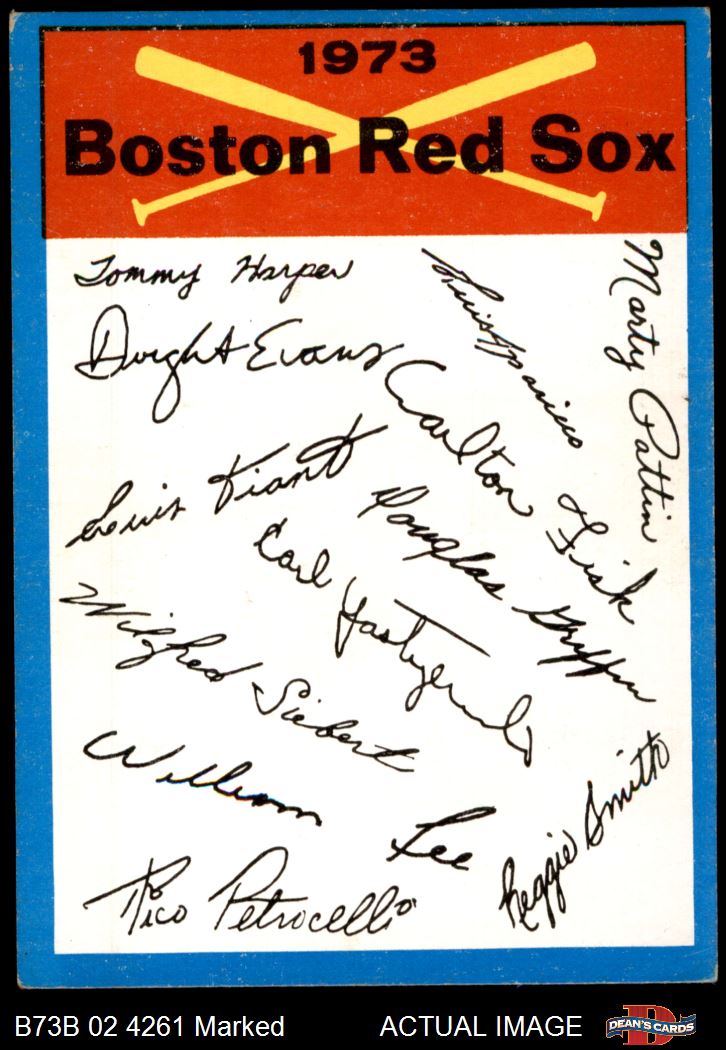 1973
Boston Red Sox
Tommy Harper
Luis Aparicio
Marty Pattin
Dwight Evans
Carlton Fisk
Luis Tiant
Douglas Griffin
Carl Yastrzemski
Wilfred Siebert
William Lee
Reggie Smith
Rico Petrocelli
B73B 02 4261 Marked
ACTUAL IMAGE
DEAN'S CARDS